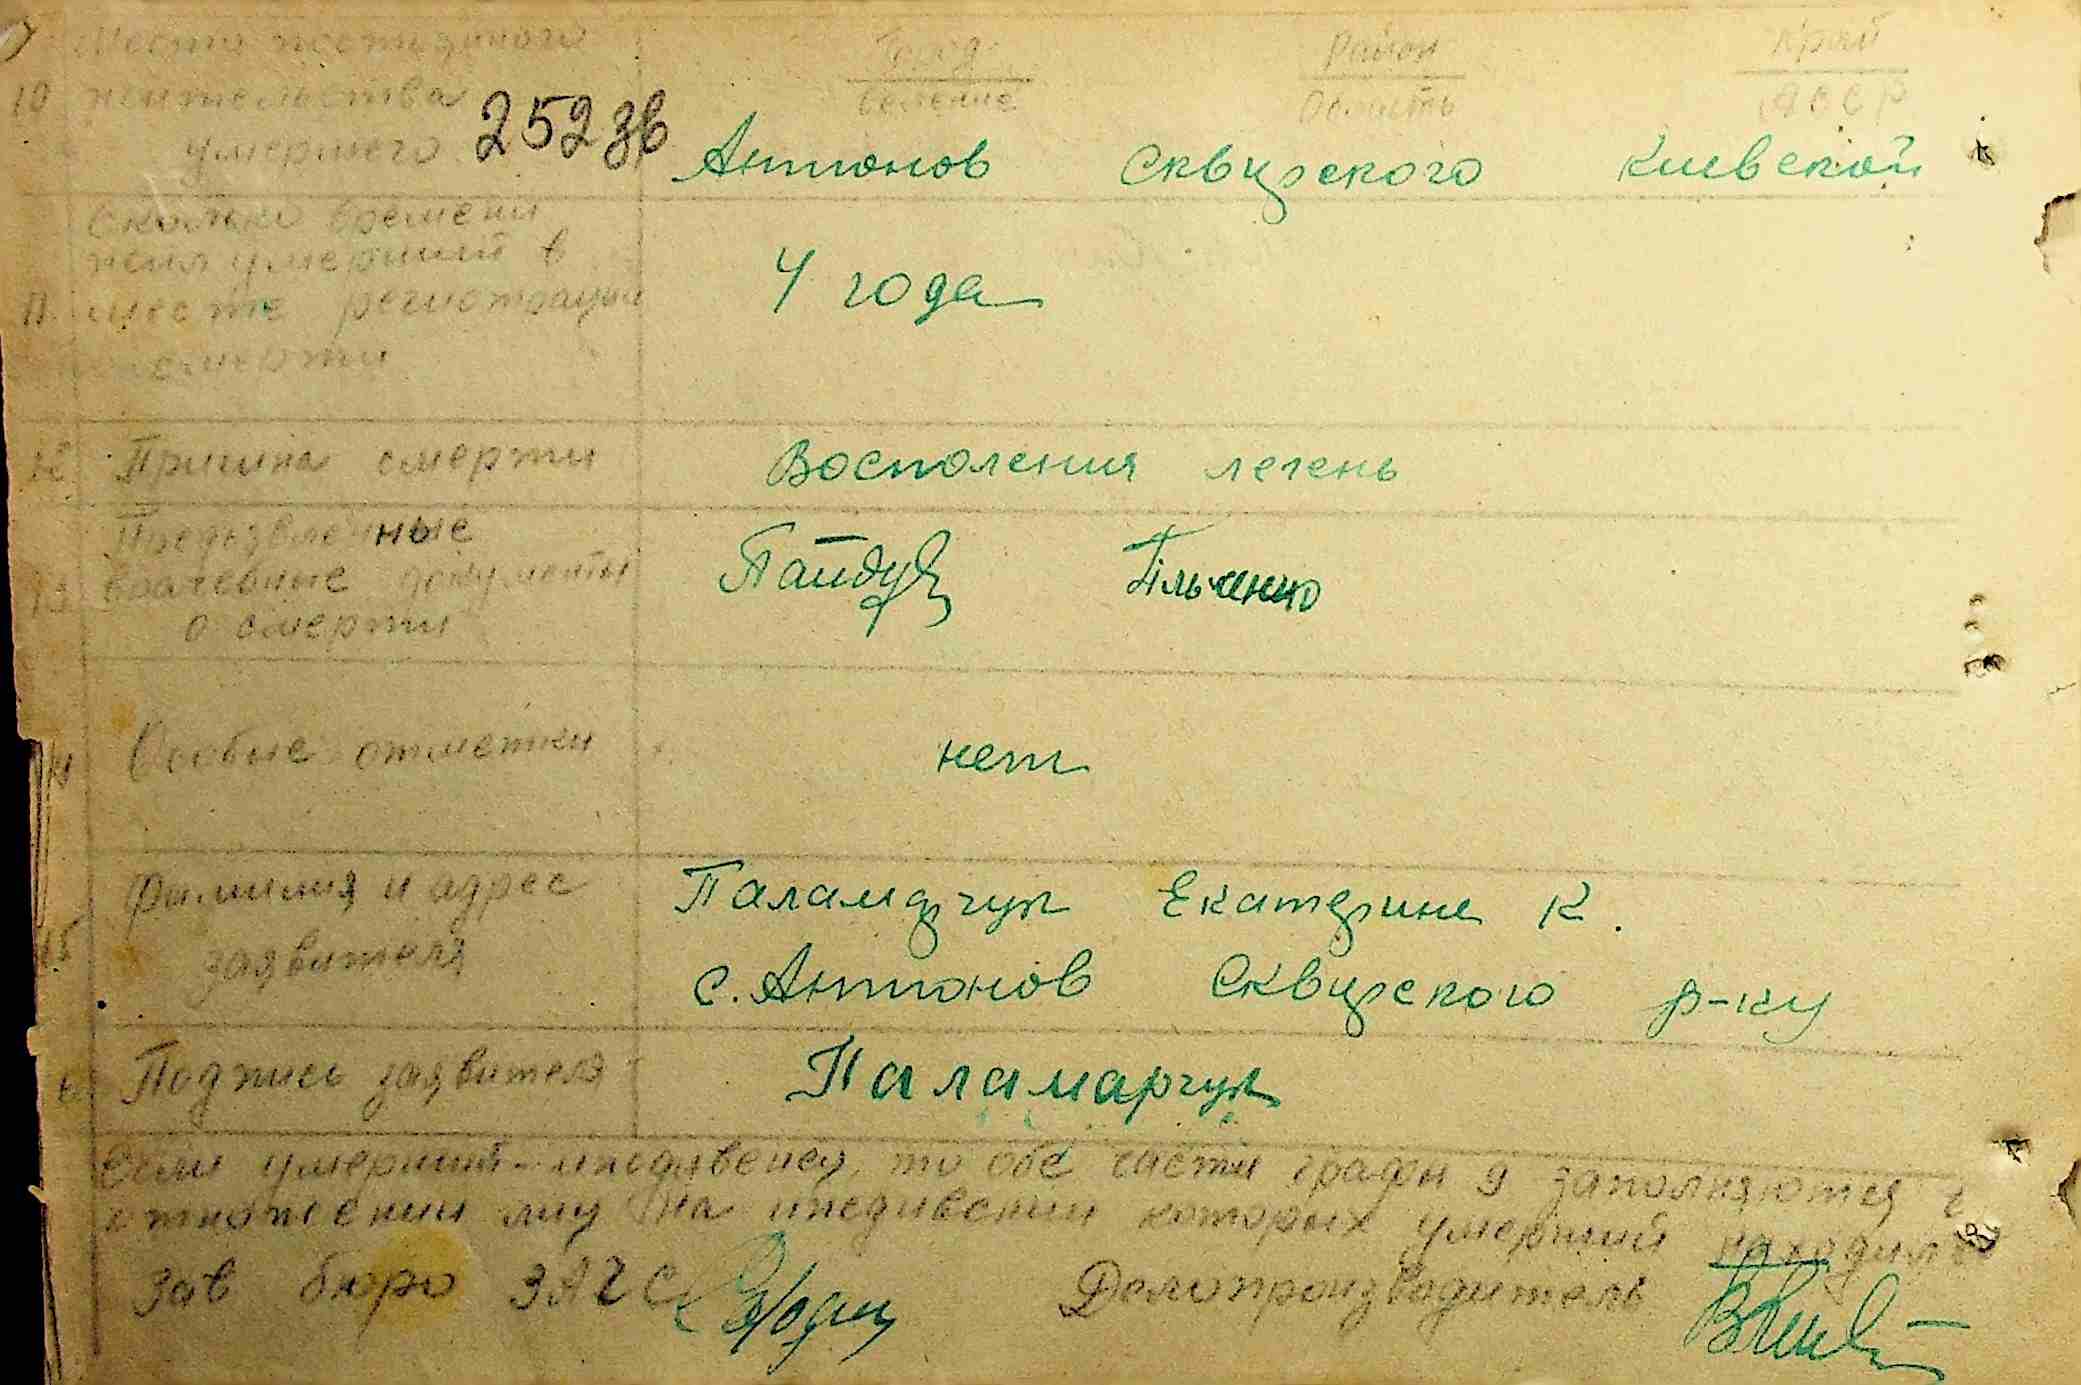 Место постоянного Город Район Край
10 жительства селение Область АССР
умершего 252зв Антонов Сквирского Киевской
Сколько времени
жил умерший в 4 года
11 месте регистрации
смерти
12 Причина смерти Восполения легень
Предъявленные
13 врачебные документы Пільченко
о смерти
14 Особые отметки нет
Фамилия и адрес Паламарчук Екатерина К.
15 заявителя с. Антонов Сквирского р-ку
Подпись заявителя Паламарчук
Если умерший - иждивенец, то обе части графы 9 заполняются в
отношении лиц на иждивении которых умерший находился
Зав бюро ЗАГС Делопроизводитель